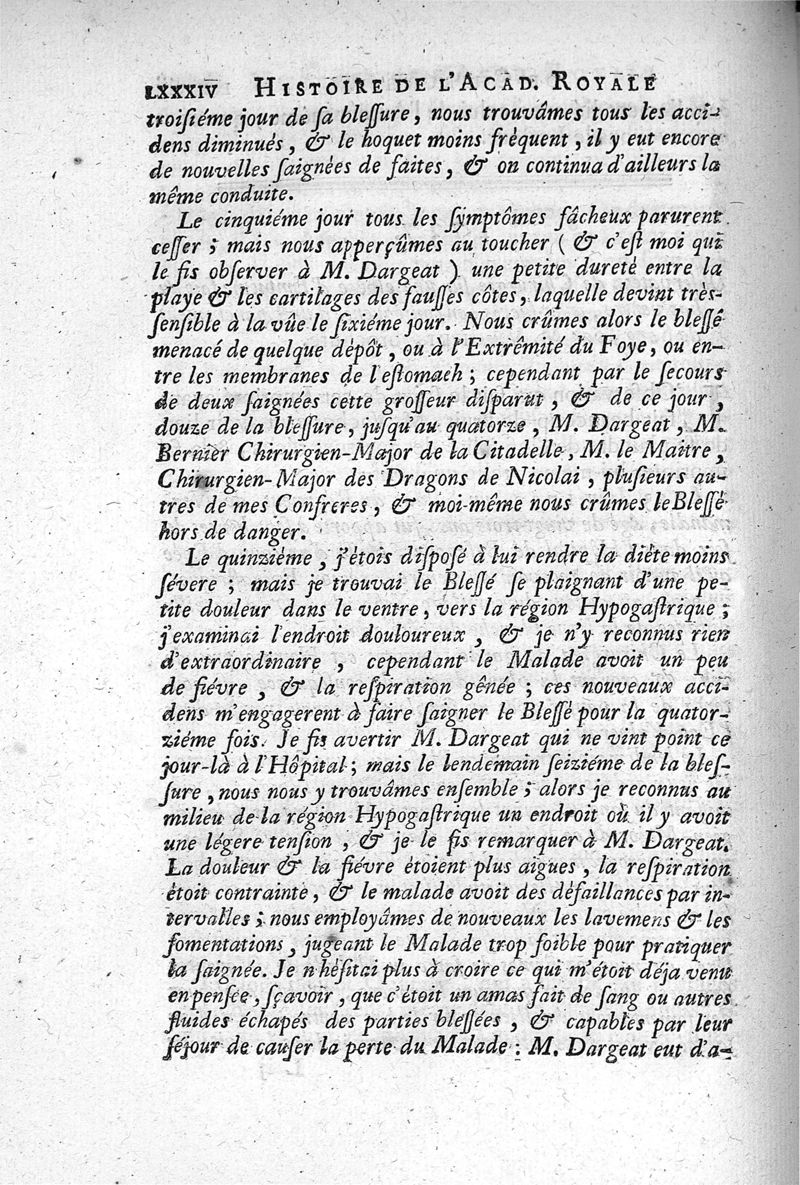 LXXXIV HISTOIRE DE L'ACAD. ROYALE
troiſiéme jour de ſa bleſſure, nous trouvâmes tous les acci-
dens diminués, & le hoquet moins fréquent, il y eut encore
de nouvelles ſaignées de faites, & on continua d'ailleurs la
même conduite.
Le cinquiéme jour tous les ſymptômes fâcheux parurent
ceſſer ; mais nous apperçûmes au toucher ( & c'eſt moi qui
le fis obſerver à M. Dargeat ) une petite dureté entre la
playe & les cartilages des fauſſes côtes, laquelle devint très-
ſenſible à la vûe le ſixiéme jour. Nous crûmes alors le bleſſé
menacé de quelque dépôt, ou à l'Extrêmité du Foye, ou en-
tre les membranes de l'eſtomach ; cependant par le ſecours
de deux ſaignées cette groſſeur diſparut, & de ce jour,
douze de la bleſſure, juſqu'au quatorze, M. Dargeat, M.
Bernier Chirurgien-Major de la Citadelle, M. le Maitre,
Chirurgien-Major des Dragons de Nicolai, pluſieurs au-
tres de mes Confreres, & moi-même nous crûmes le Bleſſé
hors de danger.
Le quinziéme, j'étois diſpoſé à lui rendre la diéte moins
ſévere ; mais je trouvai le Bleſſé ſe plaignant d'une pe-
tite douleur dans le ventre, vers la région Hypogaſtrique ;
j'examinai l'endroit douloureux, & je n'y reconnus rien
d'extraordinaire, cependant le Malade avoit un peu
de fiévre, & la reſpiration gênée ; ces nouveaux acci-
dens m'engagerent à faire ſaigner le Bleſſé pour la quator-
ziéme fois. Je fis avertir M. Dargeat qui ne vint point ce
jour-là à l'Hôpital ; mais le lendemain ſeiziéme de la bleſ-
ſure, nous nous y trouvâmes enſemble ; alors je reconnus au
milieu de la région Hypogaſtrique un endroit où il y avoit
une légere tenſion, & je le fis remarquer à M. Dargeat.
La douleur & la fiévre étoient plus aigues, la reſpiration
étoit contrainte, & le malade avoit des défaillances par in-
tervalles ; nous employâmes de nouveaux les lavemens & les
fomentations, jugeant le Malade trop foible pour pratiquer
la ſaignée. Je n'héſitai plus à croire ce qui m'étoit déja venu
en penſée, ſçavoir, que c'étoit un amas fait de ſang ou autres
fluides échapés des parties bleſſées, & capables par leur
ſéjour de cauſer la perte du Malade : M. Dargeat eut d'a-